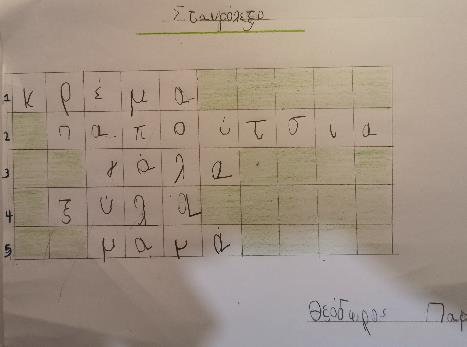 Σταυρόλεξο
1 κρέμα
2 παπούτσια
3 γάλα
4 ξύλα
5 μαμά
Θεόδωρος Παρ